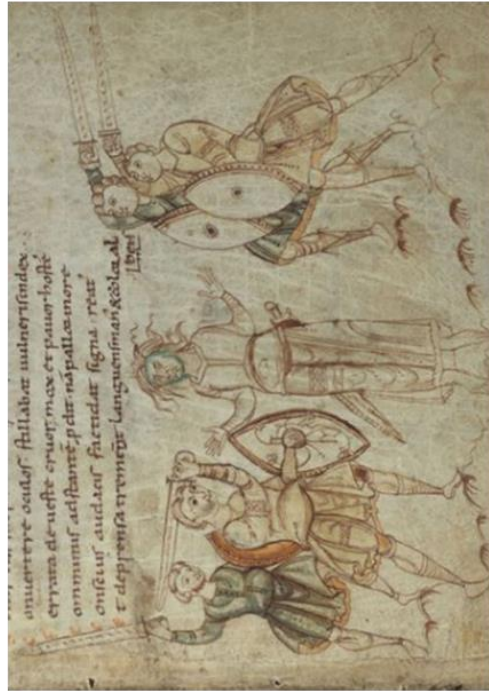 onuertere oculos stillabat uulneris index
errata de ueste cruor mox et pauor hostē
omminus adstantē pdit nā pallor in ore
onscius audacis facti dat signa reat᾽
t deprensa tremit languens man᾽ & color al
bens